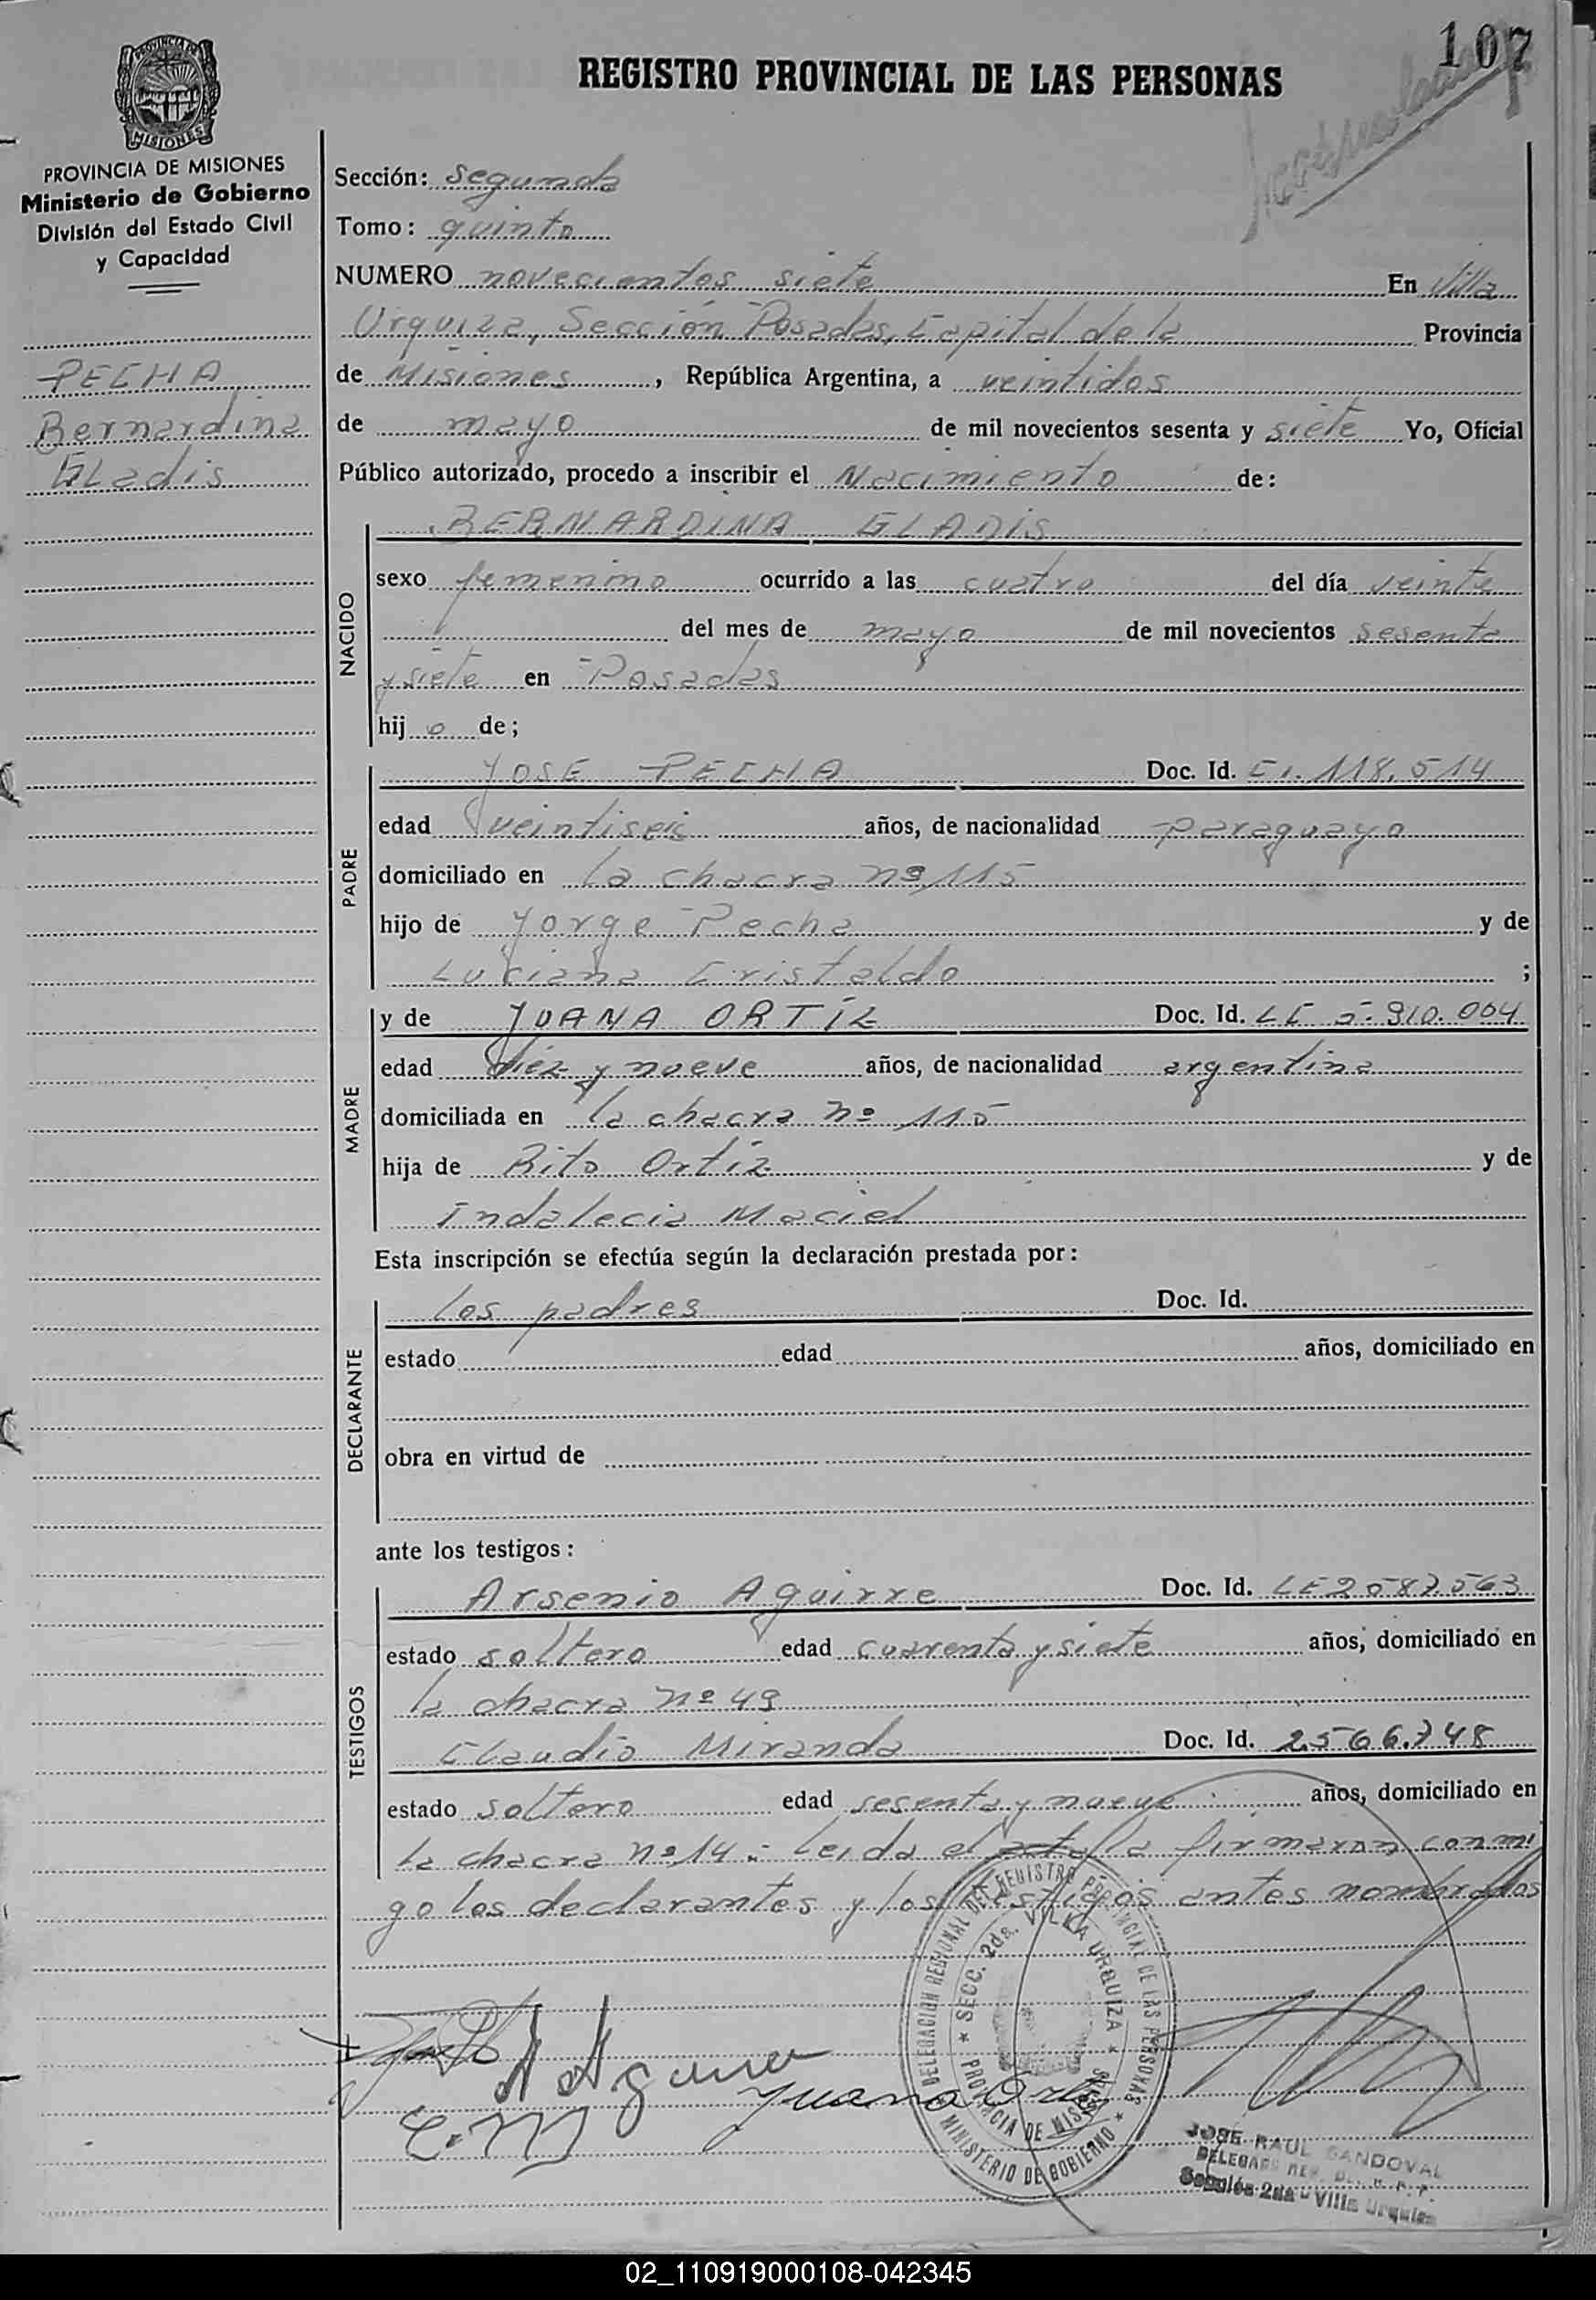 107
REGISTRO PROVINCIAL DE LAS PERSONAS
PROVINCIA DE MISIONES
PROVINCIA DE MISIONES
Ministerio de Gobierno
División del Estado Civil
y Capacidad
PECHA
Bernardina
Gladis
Sección: segunda
Tomo: quinto
NUMERO novecientos siete En Villa
Urquiza, Sección Posadas, Capital de la Provincia
de Misiones, República Argentina, a veintidos
de mayo de mil novecientos sesenta y siete Yo, Oficial
Público autorizado, procedo a inscribir el Nacimiento de:
NACIDO
BERNARDINA GLADIS
sexo femenino ocurrido a las cuatro del día veinte
del mes de mayo de mil novecientos sesenta
y siete en Posadas
hij o de;
PADRE
JOSE PECHA Doc. Id. CI. 118.514
edad veintiseis años, de nacionalidad paraguayo
domiciliado en la chacra nº 115
hijo de Jorge Pecha y de
Luciana Cristaldo ;
MADRE
y de JUANA ORTIZ Doc. Id. LC 5.910.004
edad diez y nueve años, de nacionalidad argentina
domiciliada en la chacra nº 115
hija de Rito Ortiz y de
Indalecia Maciel
Esta inscripción se efectúa según la declaración prestada por:
DECLARANTE
los padres Doc. Id.
estado edad años, domiciliado en
obra en virtud de
ante los testigos:
TESTIGOS
Arsenio Aguirre Doc. Id. LE 2587563
estado soltero edad cuarenta y siete años, domiciliado en
la chacra nº 49
Claudio Miranda Doc. Id. 2.566.748
estado soltero edad sesenta y nueve años, domiciliado en
la chacra nº 14.- Leida el acta la firmaron conmi
go los declarantes y los testigos antes nombrados
DELEGACION REGIONAL DEL REGISTRO PROVINCIAL DE LAS PERSONAS
SECC. 2da. VILLA URQUIZA
PROVINCIA DE MISIONES
MINISTERIO DE GOBIERNO
A Aguirre
Juana Ortiz
C. M
JOSE RAUL SANDOVAL
Sección 2da - Villa Urquiza
02_110919000108-042345